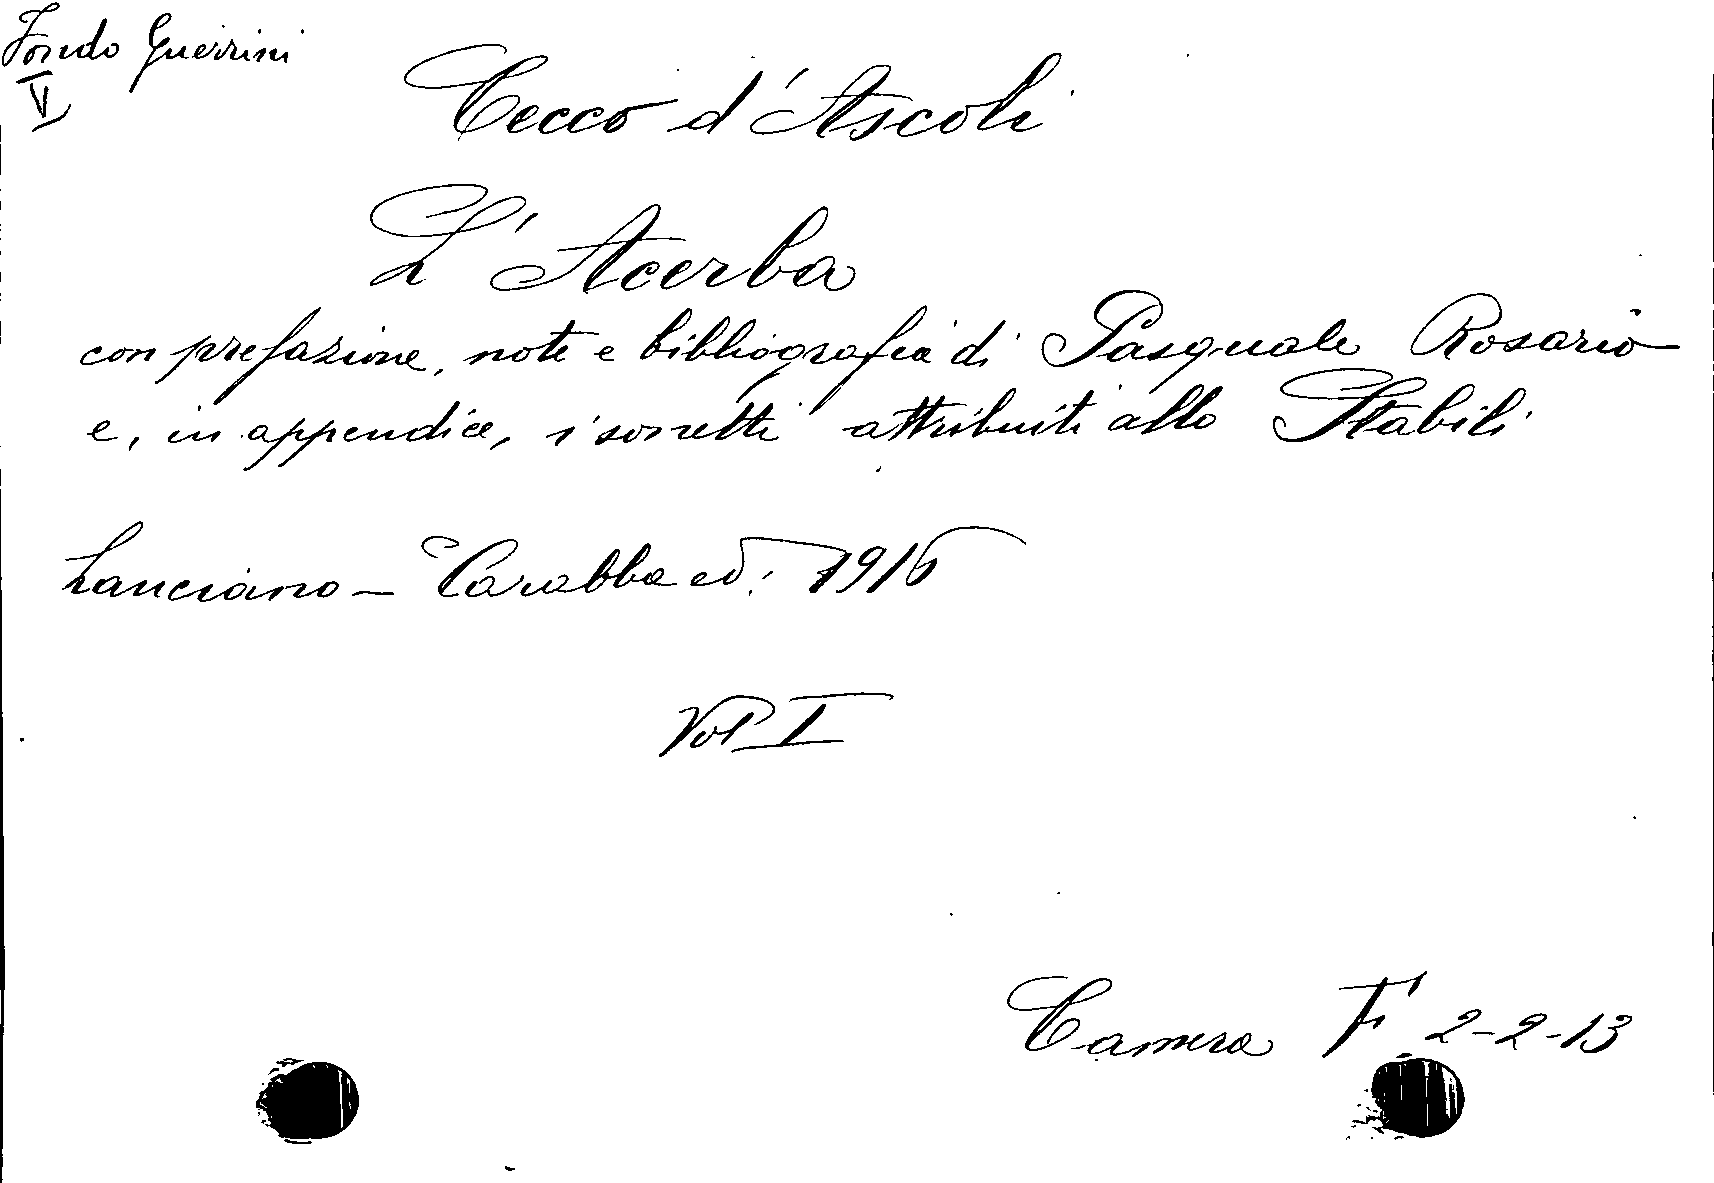 Fondo Guerrini
V
Cecco d'Ascoli
L'Acerba
con prefazione, note e bibliografia di Pasquale Rosario
e, in appendice, i sonetti attribuiti allo Stabili
Lanciano - Carabba ed: 1916
Vol I
Camera F 2-2-13